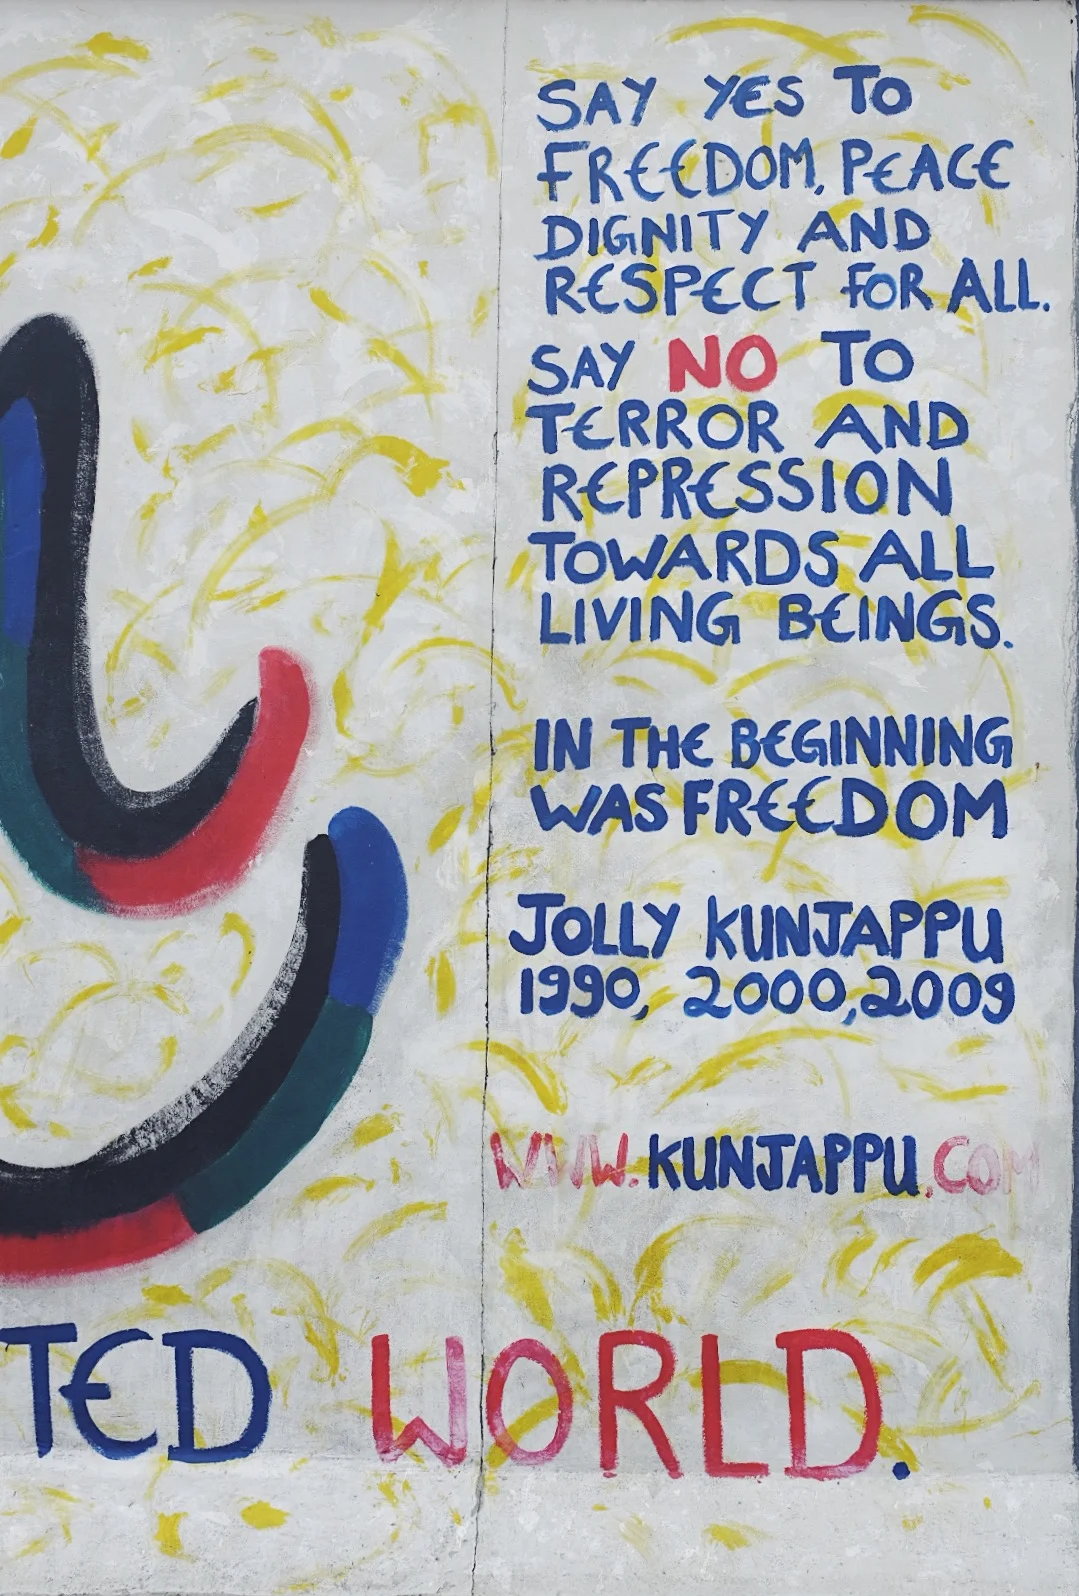 SAY YES TO
FREEDOM, PEACE
DIGNITY AND
RESPECT FOR ALL.
SAY NO TO
TERROR AND
REPRESSION
TOWARDS ALL
LIVING BEINGS.
IN THE BEGINNING
WAS FREEDOM
JOLLY KUNJAPPU
1990, 2000, 2009
WWW.KUNJAPPU.COM
TED WORLD.